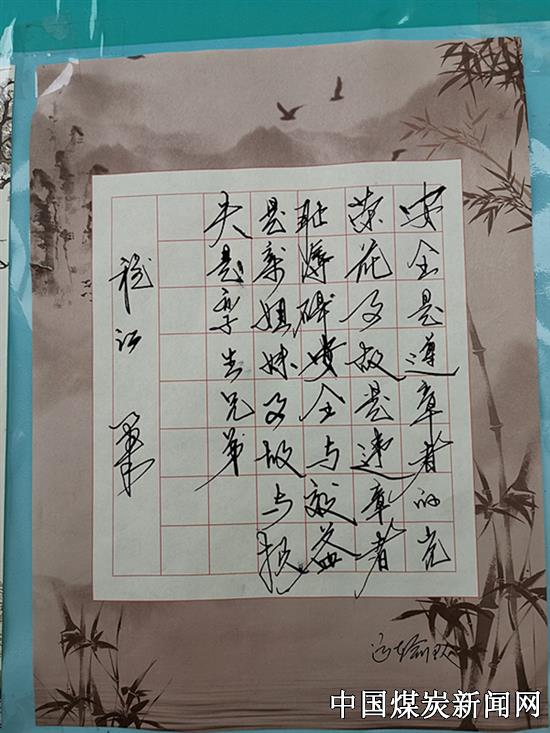 安全是遵章者的光
荣花事故是违章者
耻辱碑安全与效益
是亲姐妹事故与损
失是孪生兄弟
中国煤炭新闻网